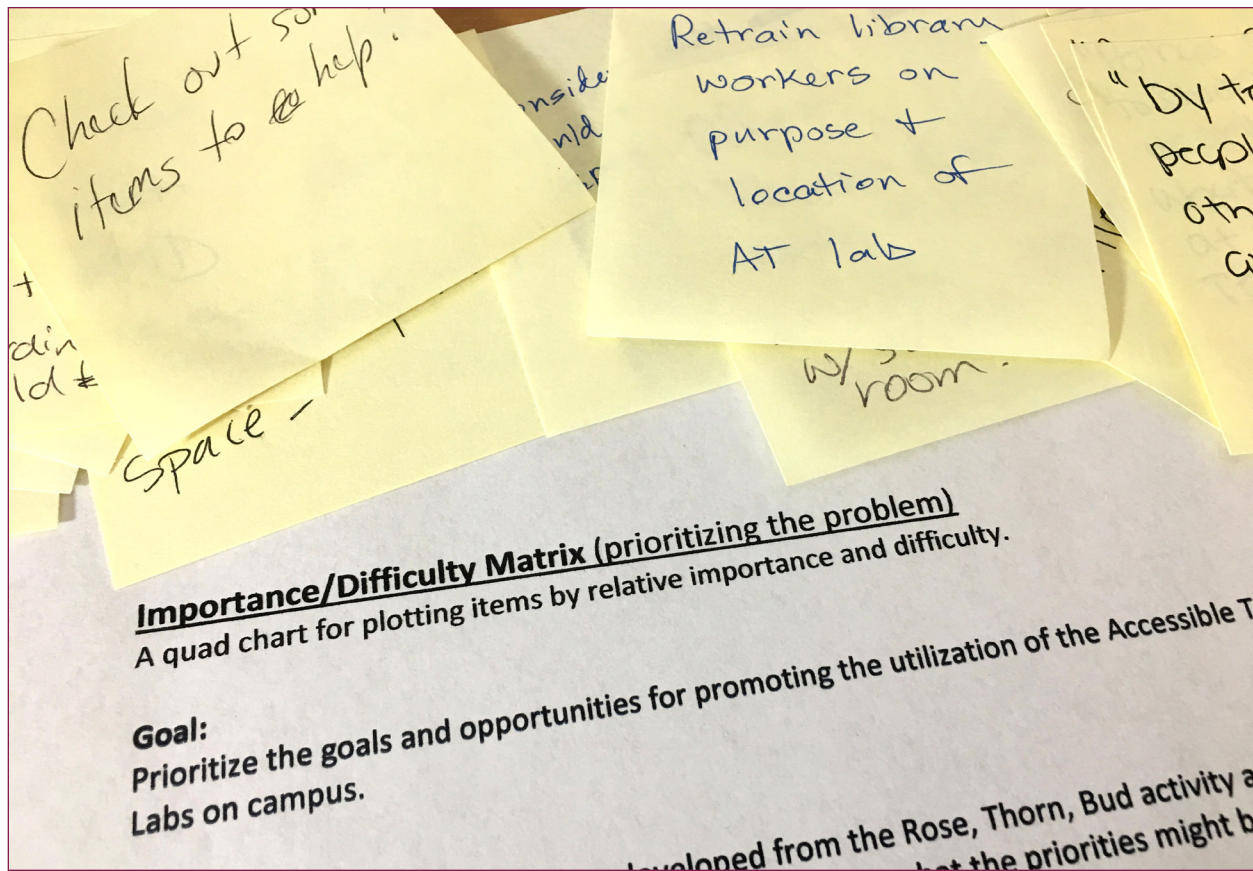 Check out
items to help.
Retrain library
workers on
purpose +
location of
AT lab
"by
Space -
w/
room.
Importance/Difficulty Matrix (prioritizing the problem)
A quad chart for plotting items by relative importance and difficulty.
Goal:
Prioritize the goals and opportunities for promoting the utilization of the Accessible T
Labs on campus.
developed from the Rose, Thorn, Bud activity
the priorities might b